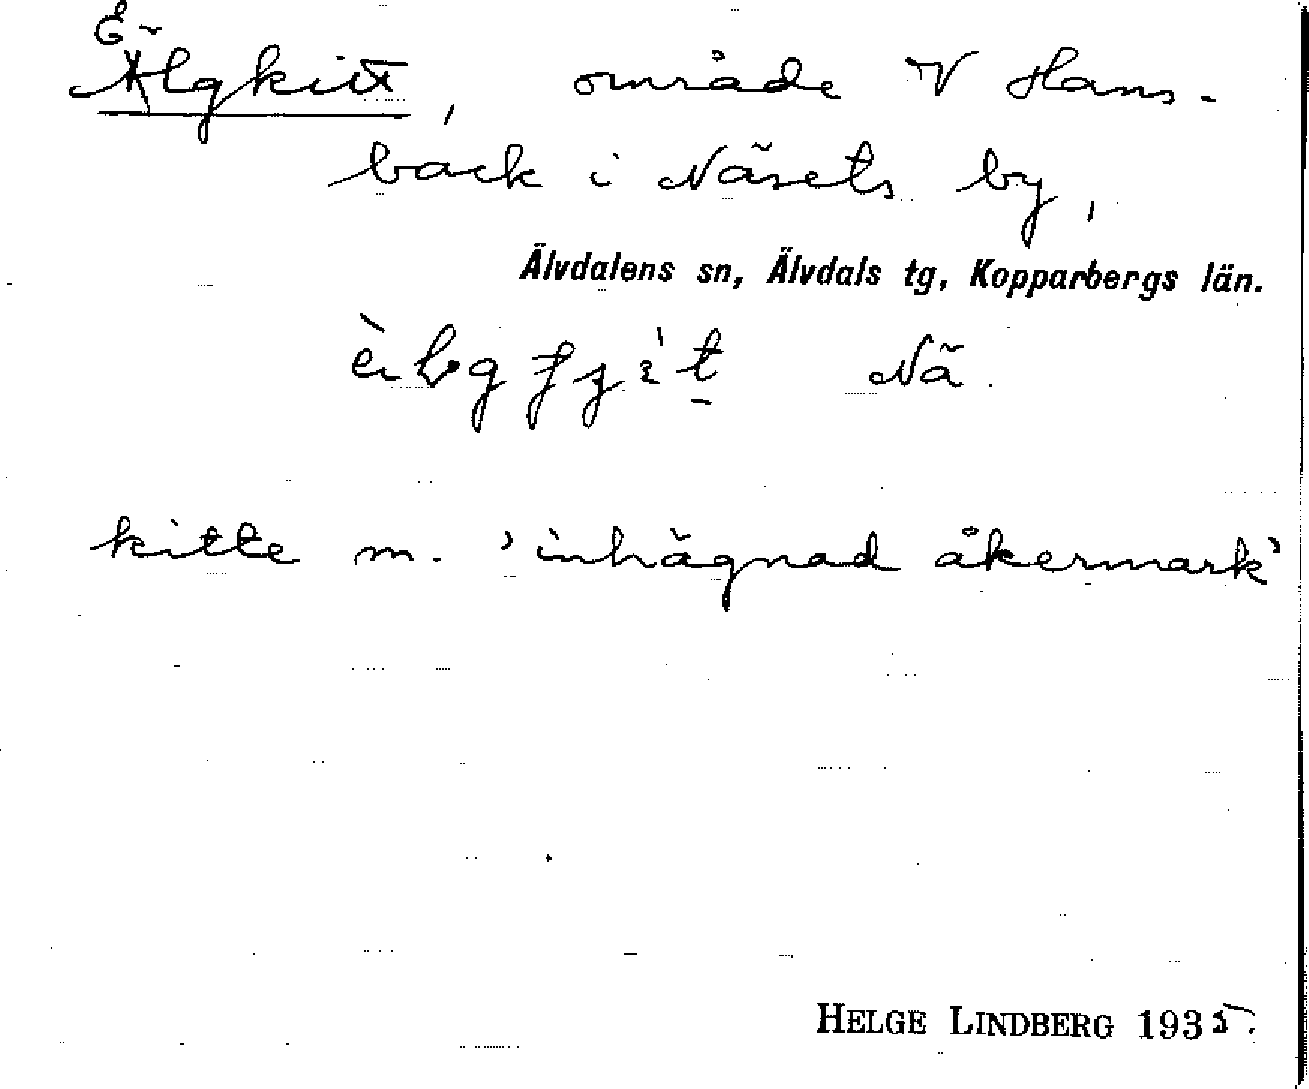 Älgkitt, område V Hans-
back i Näsets by,
Älvdalens sn, Älvdals tg, Kopparbergs län.
Nä.
kitte m. 'inhägnad åkermark'
HELGE LINDBERG 1935.